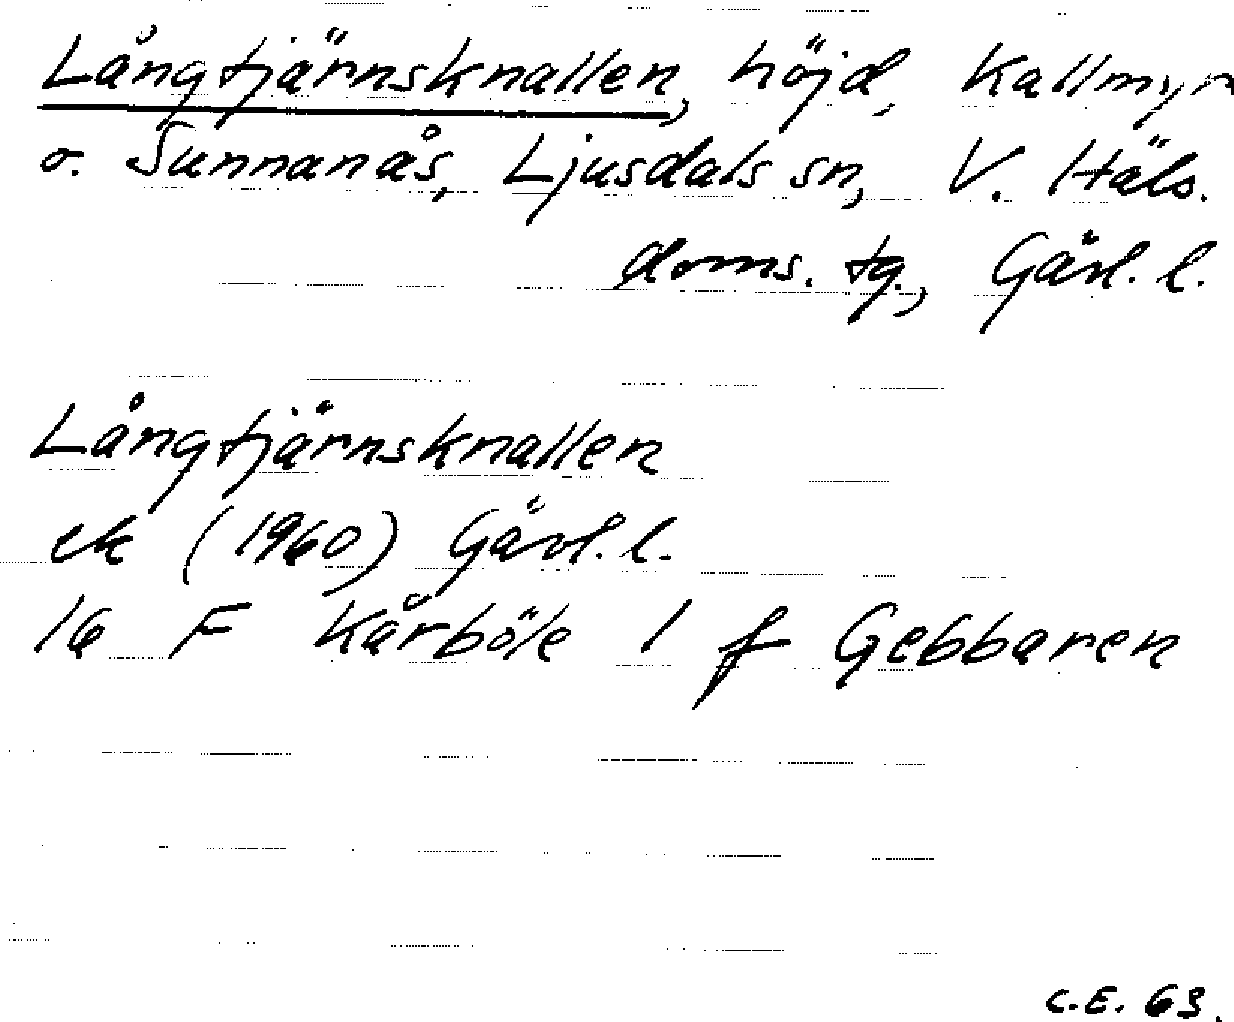 Långtjärnsknallen, höjd, Kallmyr
o. Sunnanås, Ljusdals sn, V. Häls.
doms. tg., Gävl. l.
Långtjärnsknallen
ek (1960) Gävl. l.
16 F Kårböle 1 f Gebbaren
C.E. 63.